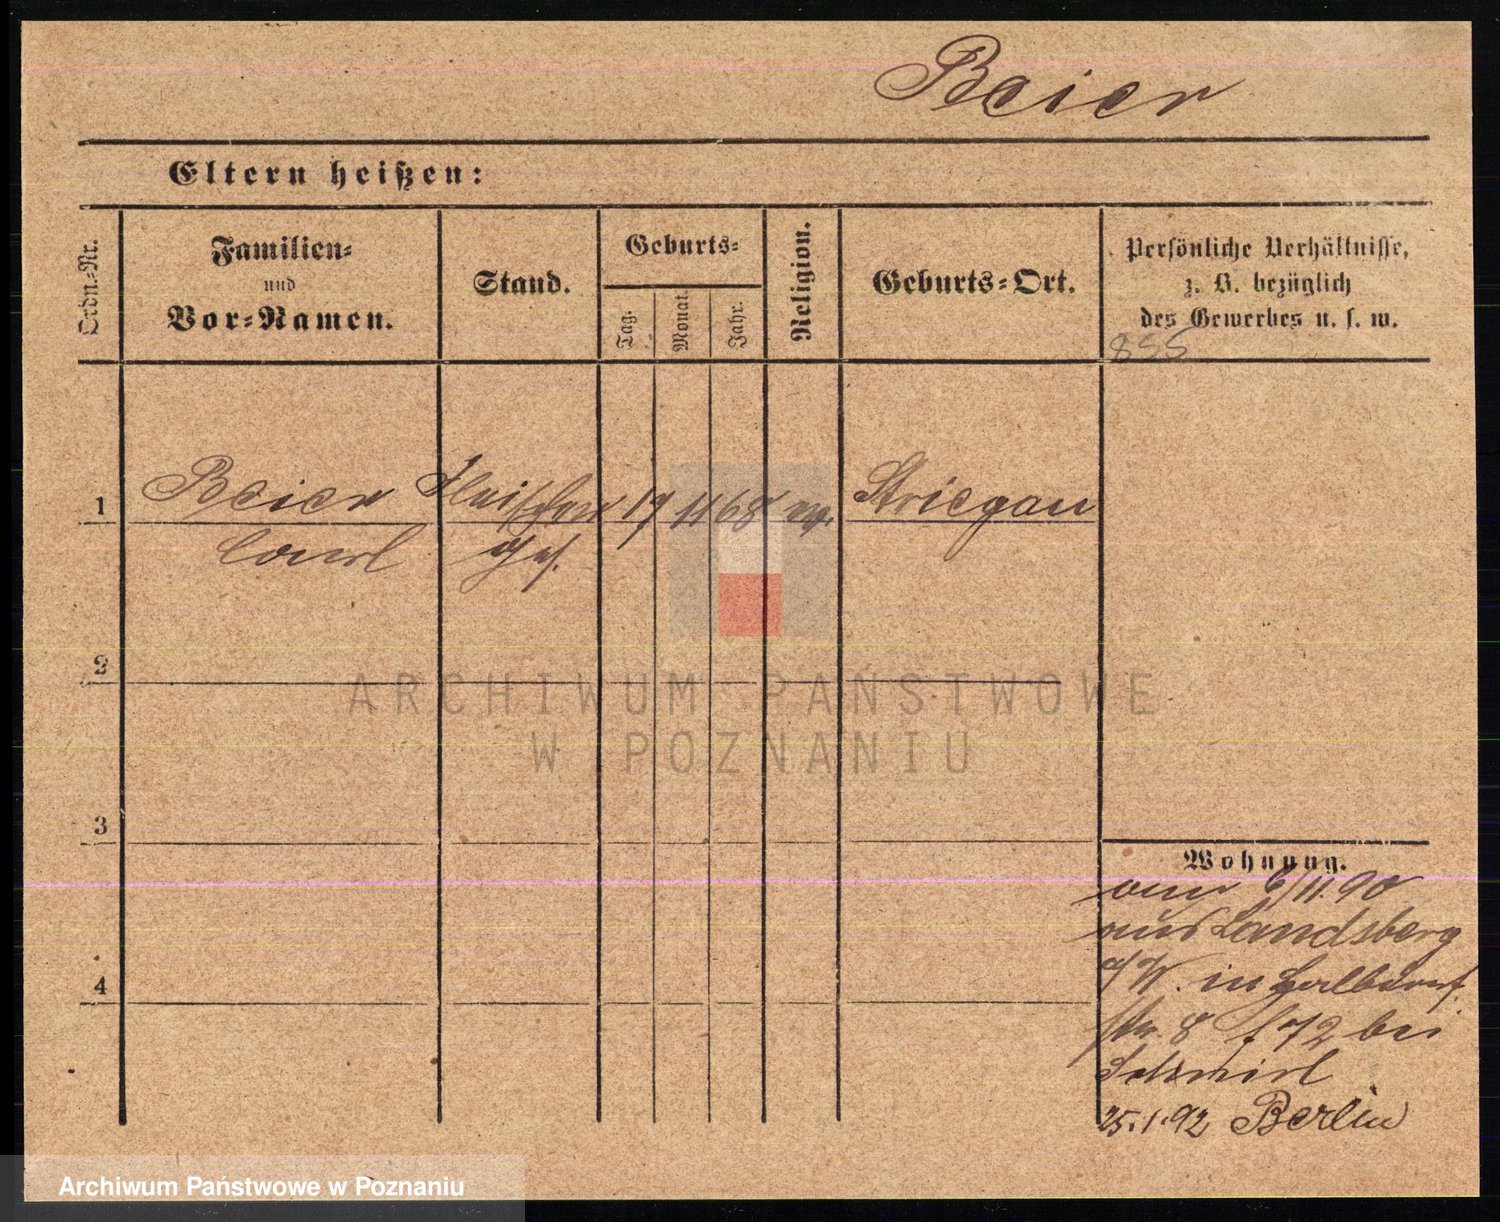 Beier
Eltern heißen:
Ordn.=Nr.
Familien=
und
Vor=Namen.
Stand.
Geburts=
Tag.
Monat.
Jahr.
Religion.
Geburts=Ort.
Persönliche Verhältnisse,
z. B. bezüglich
des Gewerbes u. s. w.
855
1 Beier Fleischer 19 11 68 ev. Striegau
Carl Ges.
2
3
4
Wohnung.
am 6/11.90
aus Landsberg
a/W. in Halbdorf
str. 8 bei
25.1.92 Berlin
ARCHIWUM PAŃSTWOWE
W POZNANIU
Archiwum Państwowe w Poznaniu